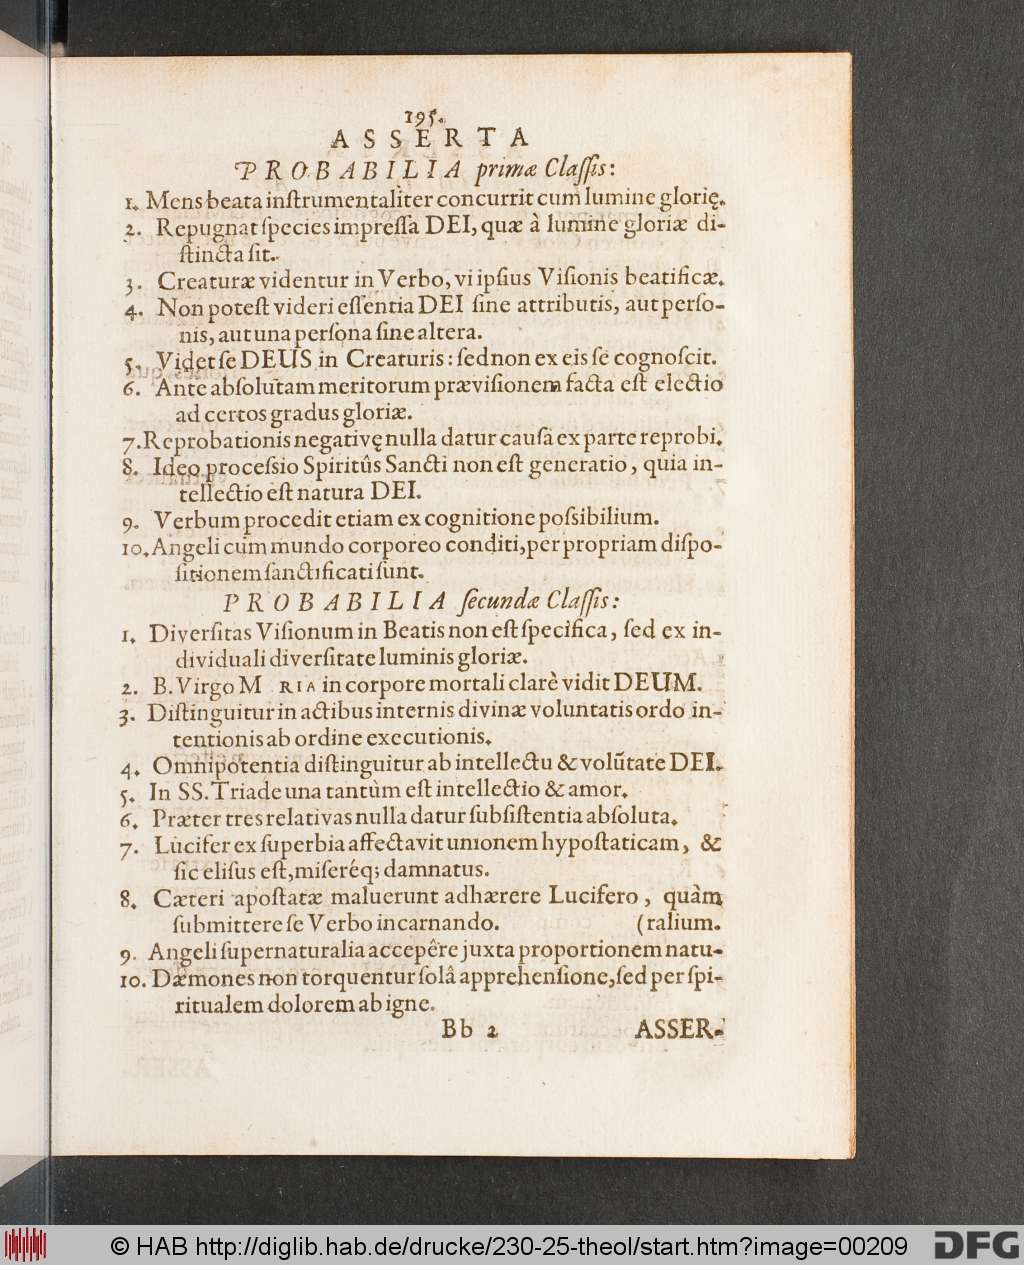 195.
ASSERTA
PROBABILIA primæ Claſſis:
1. Mens beata inſtrumentaliter concurrit cum lumine glorię.
2. Repugnat ſpecies impreſſa DEI, quæ à lumine gloriæ di-
ſtincta ſit.
3. Creaturæ videntur in Verbo, vi ipſius Viſionis beatificæ.
4. Non poteſt videri eſſentia DEI ſine attributis, aut perſo-
nis, aut una perſona ſine altera.
5. Videt ſe DEUS in Creaturis: ſed non ex eis ſe cognoſcit.
6. Ante abſolutam meritorum præviſionem facta eſt electio
ad certos gradus gloriæ.
7. Reprobationis negativę nulla datur cauſa ex parte reprobi.
8. Ideo proceſsio Spiritûs Sancti non eſt generatio, quia in-
tellectio eſt natura DEI.
9. Verbum procedit etiam ex cognitione poſsibilium.
10. Angeli cum mundo corporeo conditi, per propriam diſpo-
ſitionem ſanctificati ſunt.
PROBABILIA ſecundæ Claſſis:
1. Diverſitas Viſionum in Beatis non eſt ſpecifica, ſed ex in-
dividuali diverſitate luminis gloriæ.
2. B. Virgo M RIA in corpore mortali clarè vidit DEUM.
3. Diſtinguitur in actibus internis divinæ voluntatis ordo in-
tentionis ab ordine executionis.
4. Omnipotentia diſtinguitur ab intellectu & volũtate DEI.
5. In SS. Triade una tantùm eſt intellectio & amor.
6. Præter tres relativas nulla datur ſubſiſtentia abſoluta.
7. Lucifer ex ſuperbia affectavit unionem hypoſtaticam, &
ſic eliſus eſt, miſeréq; damnatus.
8. Cæteri apoſtatæ maluerunt adhærere Lucifero, quàm
ſubmittere ſe Verbo incarnando. (ralium.
9. Angeli ſupernaturalia accepêre juxta proportionem natu-
10. Dæmones non torquentur ſolâ apprehenſione, ſed per ſpi-
ritualem dolorem ab igne.
Bb 2 ASSER-
© HAB http://diglib.hab.de/drucke/230-25-theol/start.htm?image=00209
DFG